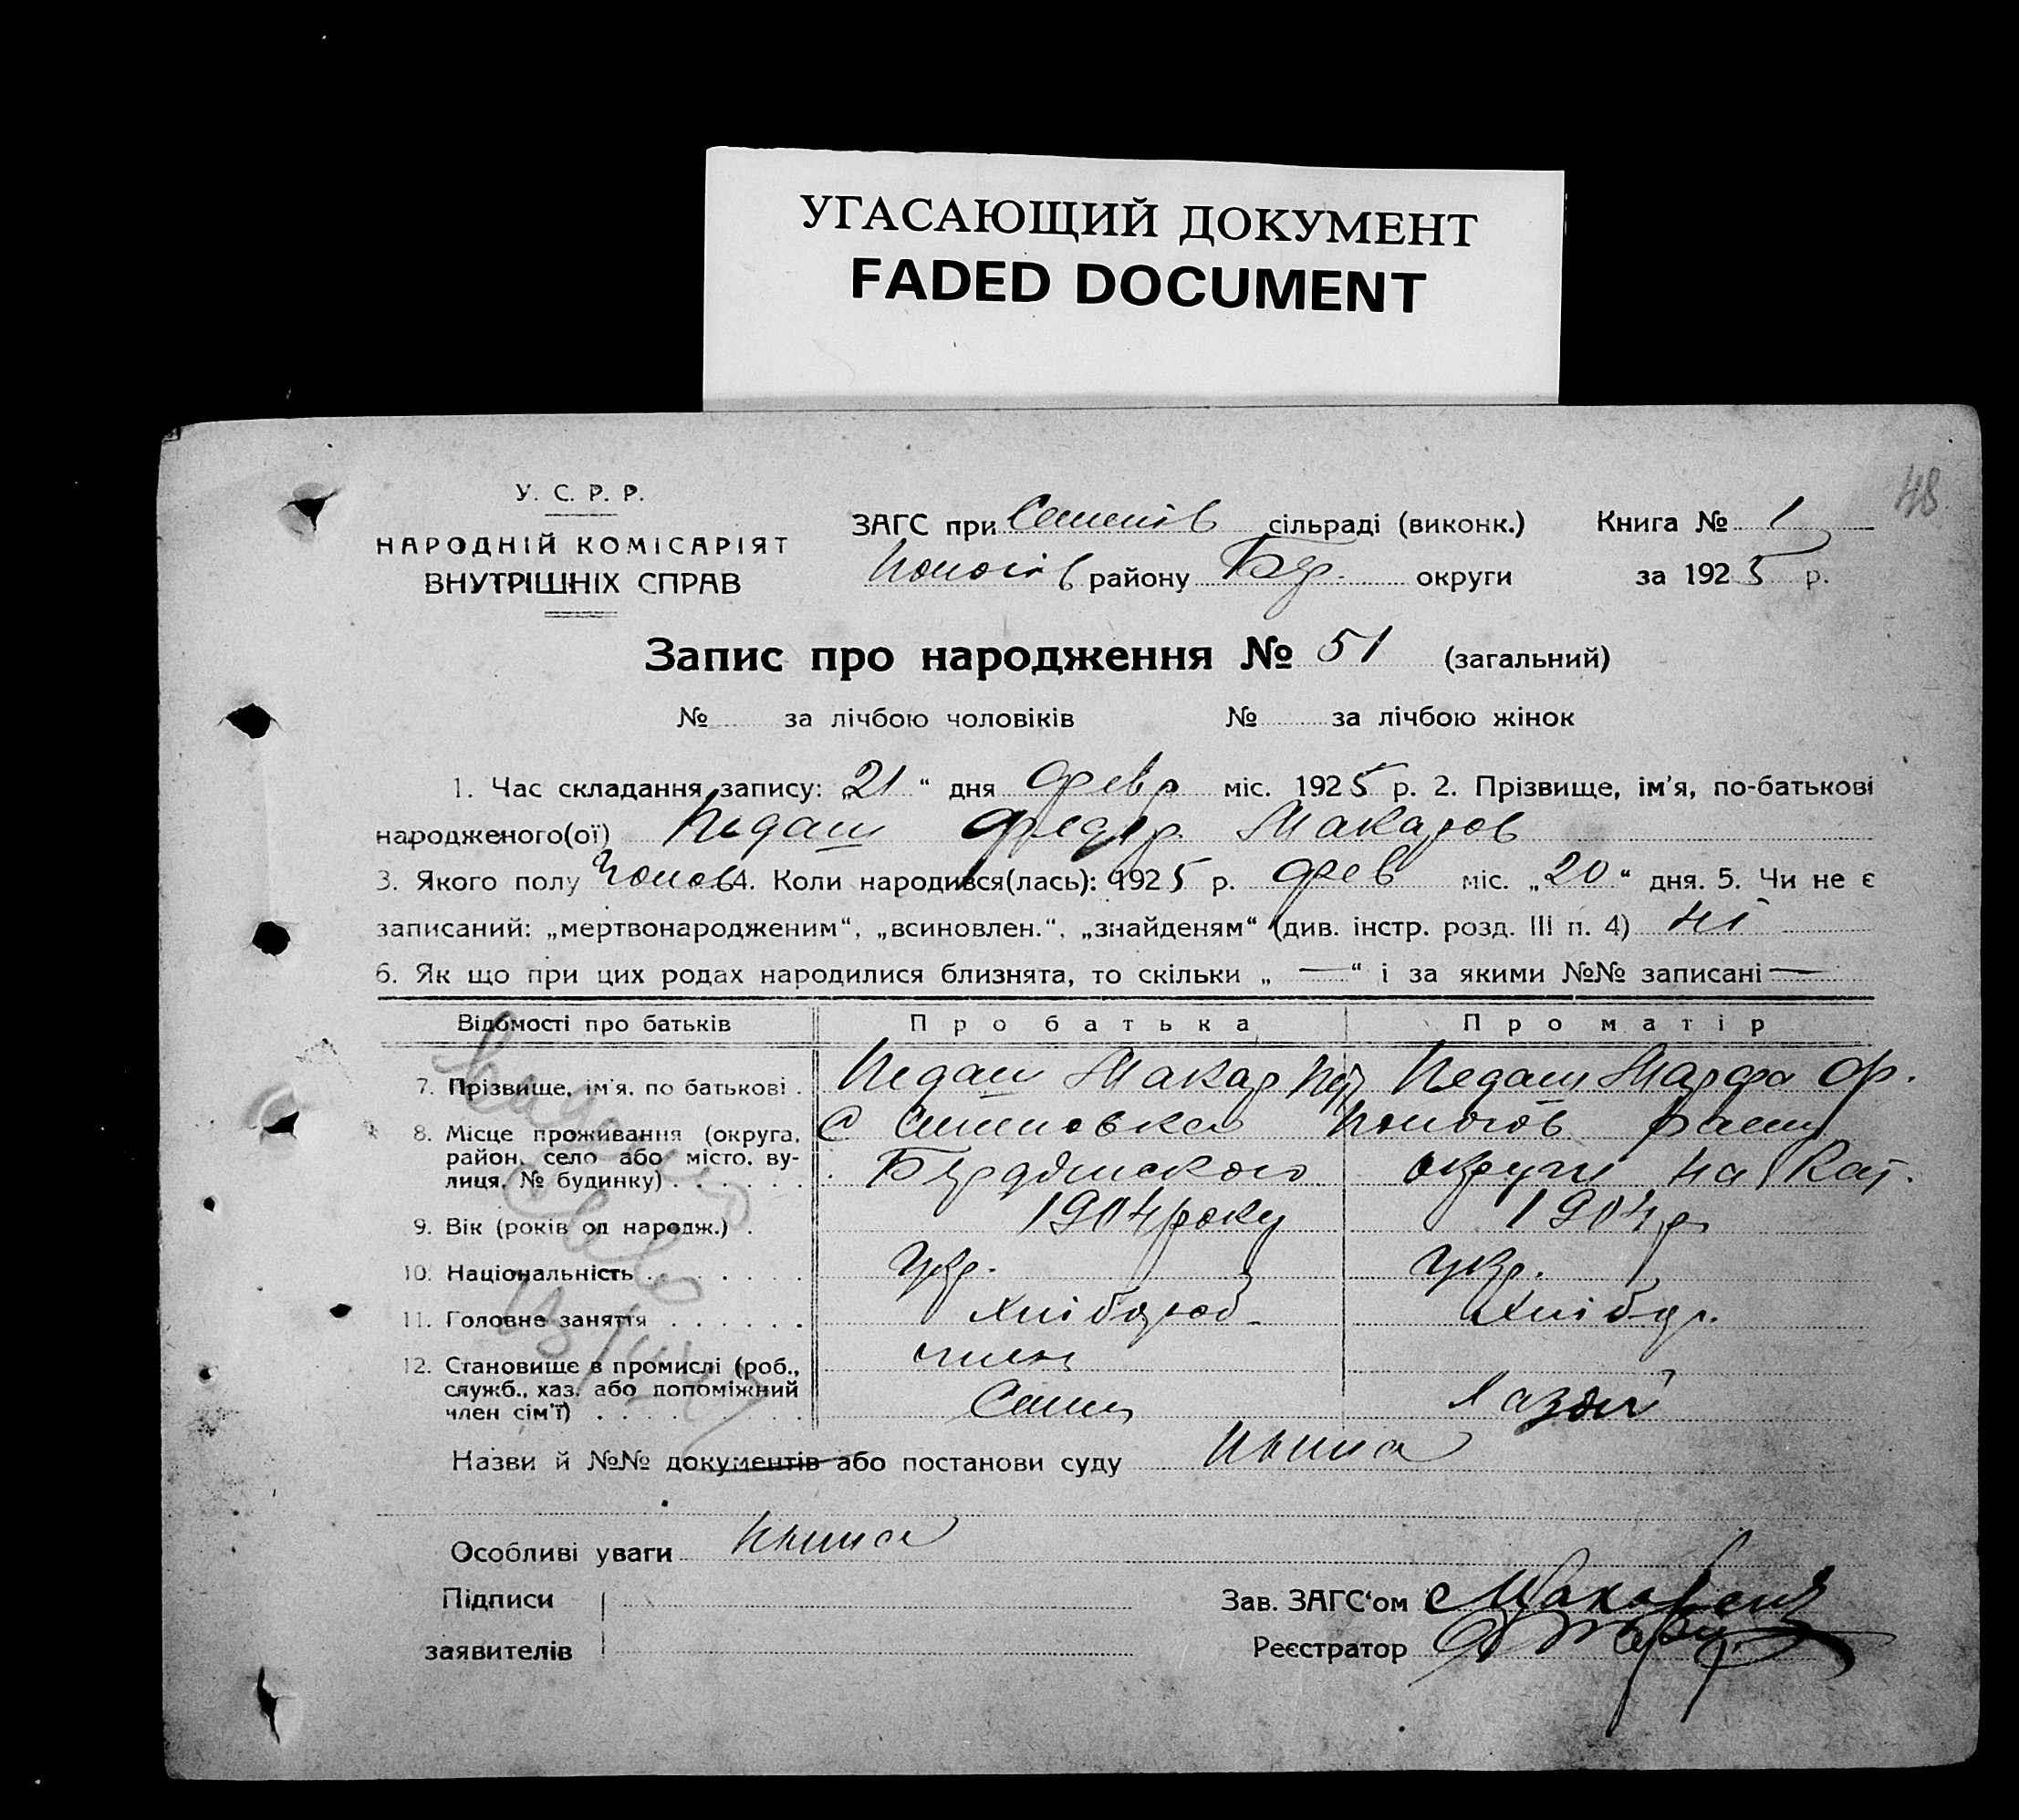 УГАСАЮЩИЙ ДОКУМЕНТ
FADED DOCUMENT
48
У. С. Р. Р.
НАРОДНІЙ КОМІСАРІЯТ
ВНУТРІШНІХ СПРАВ
ЗАГС при Семенів сільраді (виконк.) Книга № 1
Пологів району Бер. округи за 1925 р.
Запис про народження № 51 (загальний)
№ за лічбою чоловіків № за лічбою жінок
1. Час складання запису: „21“ дня февр міс. 1925 р. 2. Прізвище, ім'я, по-батькові
народженого(ої) Педаш Федер Макаров
3. Якого полу Чолов 4. Коли народився(лась): 1925 р. фев міс. „20“ дня. 5. Чи не є
записаний: „мертвонародженим“, „всиновлен.“, „знайденям“ (див. інстр. розд. III п. 4) ні
6. Як що при цих родах народилися близнята, то скільки „ — “ і за якими №№ записані —
Відомості про батьків Про батька Про матір
7. Прізвище, ім'я, по батькові . Педаш Макар Педаш Марфа Ф.
8. Місце проживання (округа, С Семеновка Пологів
район, село або місто, ву-
лиця, № будинку) . . . . . . Бердянского округи на Кат.
9. Вік (років од народж.) . 1904 року 1904 р
10. Національність . . . . . . . Укр. Укр.
11. Головне заняття . . . . . . Хлібороб Хлібор.
12. Становище в промислі (роб., член
служб., хаз. або допоміжний
член сім'ї) . . . . . . . . . Семи
Назви й №№ документів або постанови суду Ньима
Особливі уваги Ньима
Підписи
заявителів
Зав. ЗАГС'ом
Реєстратор